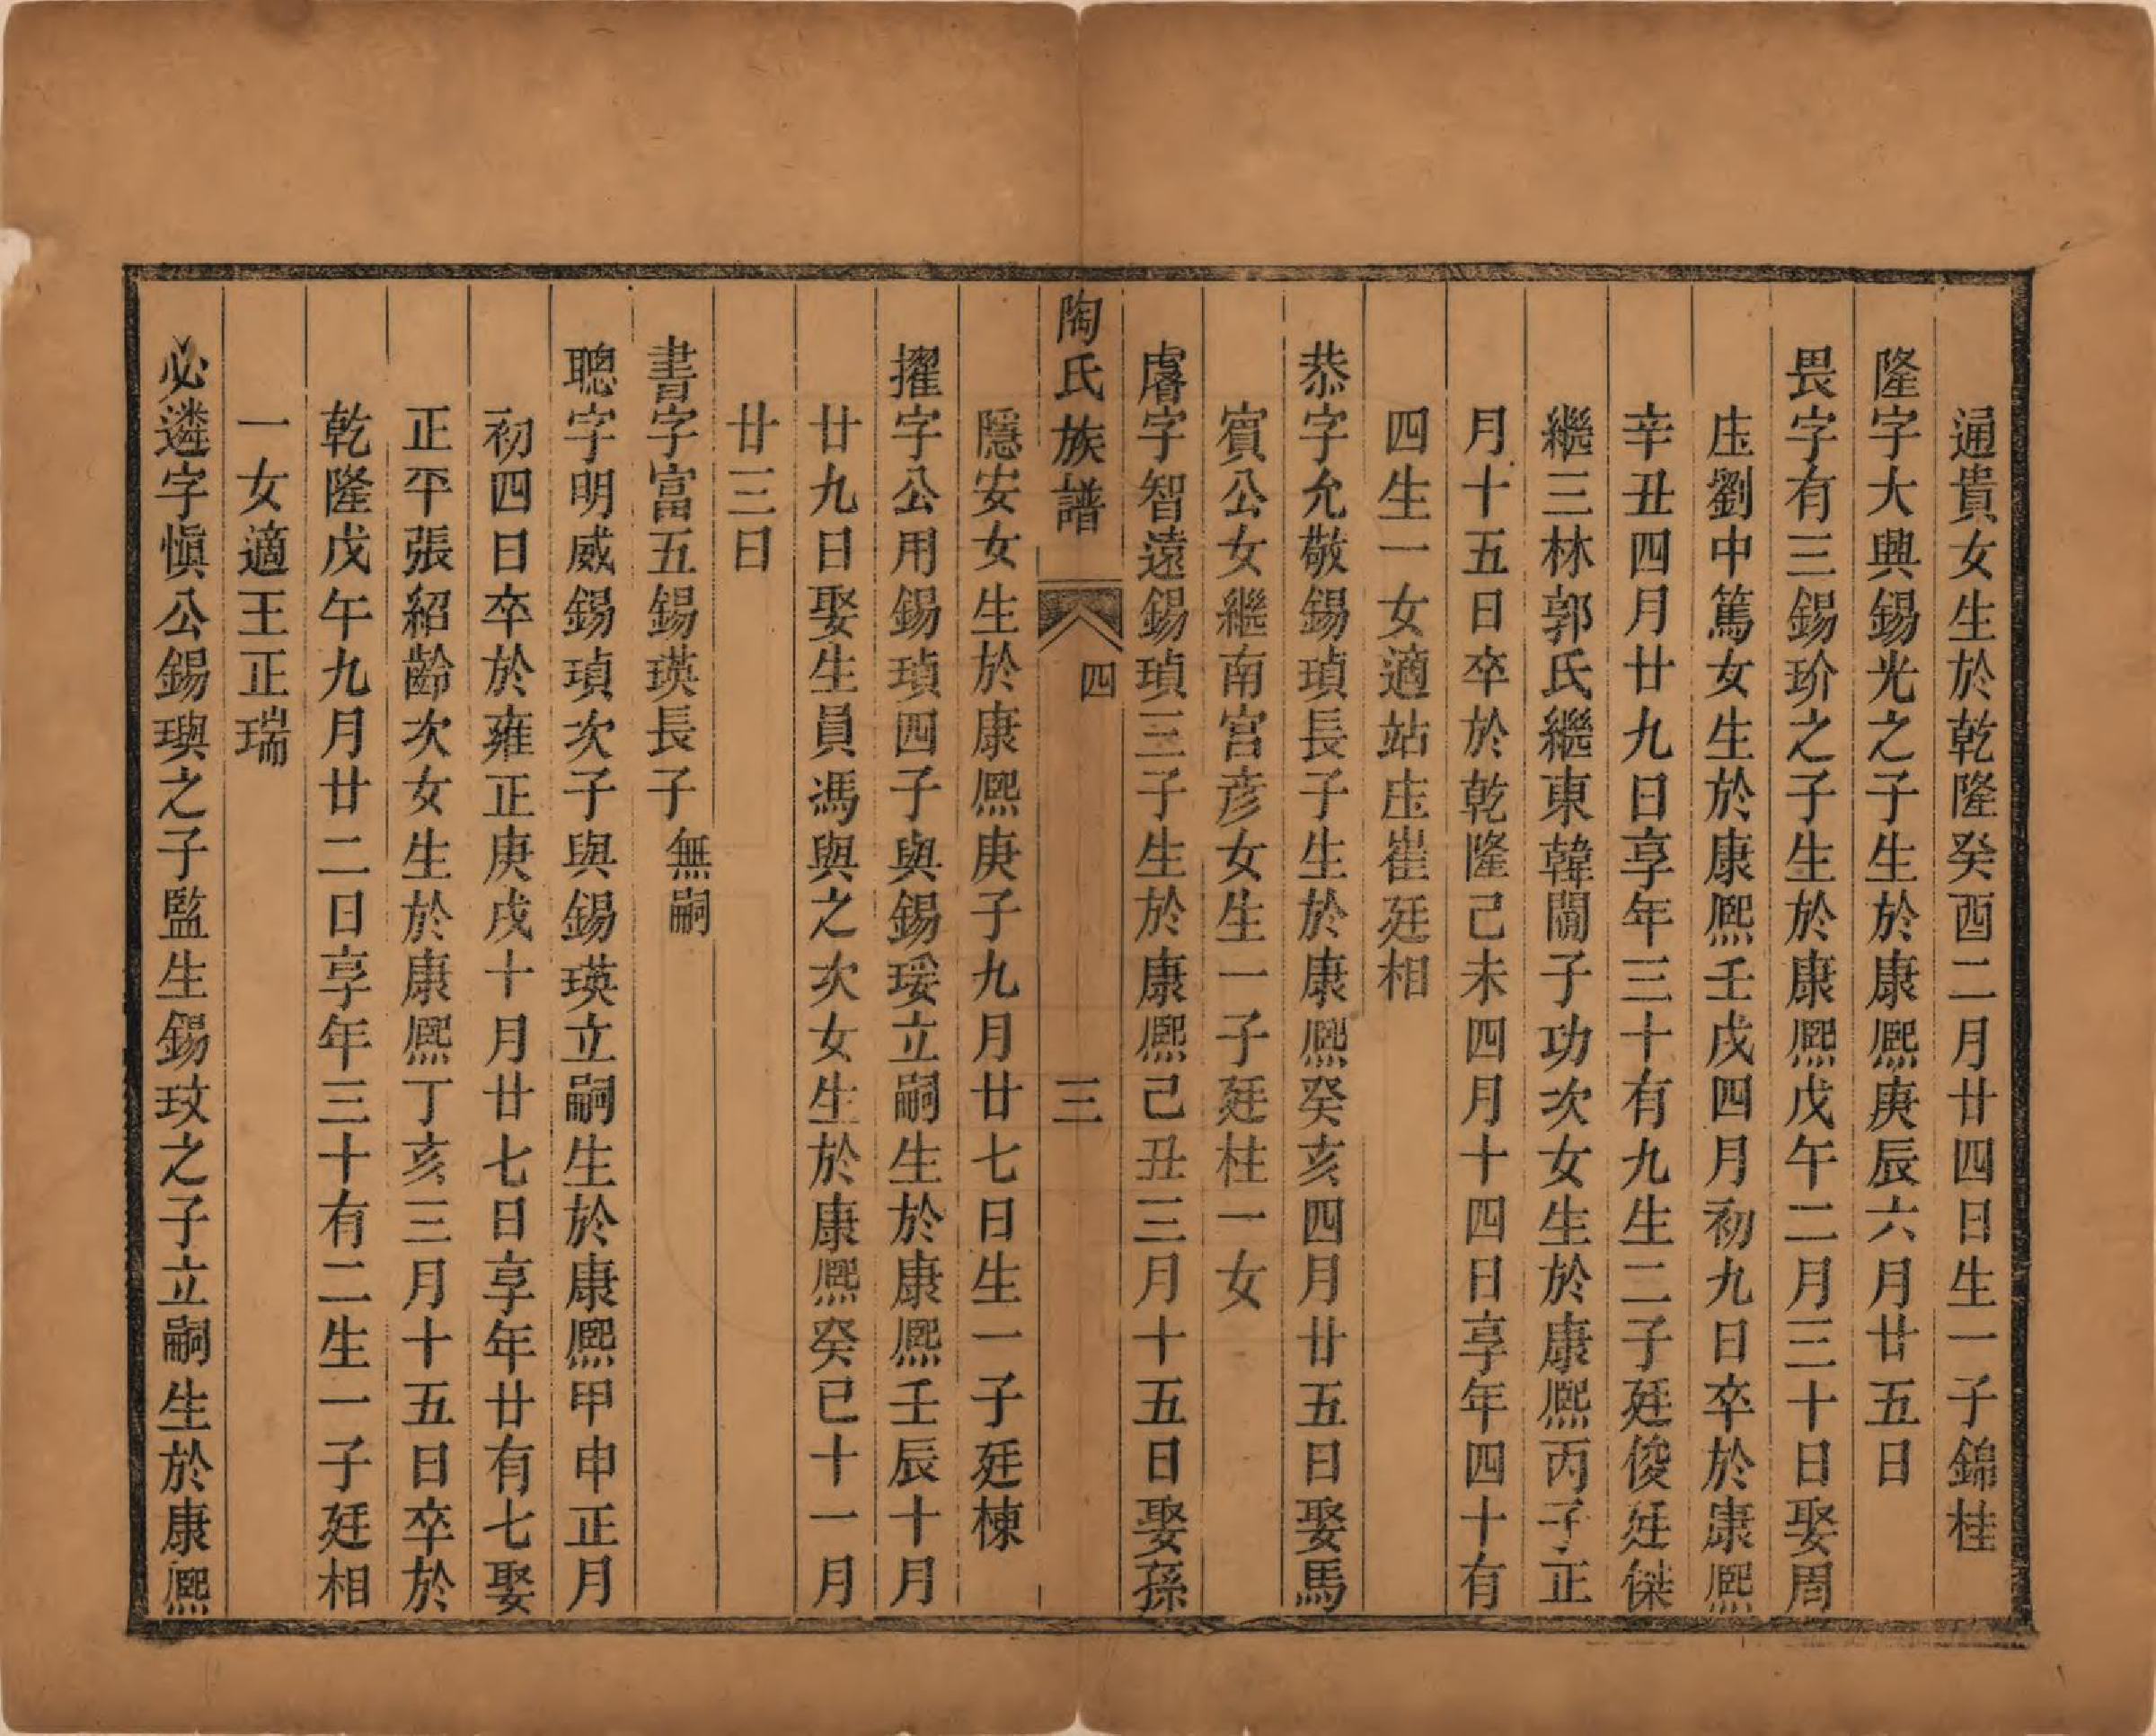 通貴女生於乾隆癸酉二月廿四日生一子錦桂
隆字大興錫光之子生於康熈庚辰六月廿五日
畏字有三錫玠之子生於康熈戊午二月三十日娶周
庄劉中篤女生於康熈壬戌四月初九日卒於康熈
辛丑四月廿九日享年三十有九生二子廷俊廷傑
繼三林郭氏繼東韓閣子功次女生於康熈丙子正
月十五日卒於乾隆己未四月十四日享年四十有
四生一女適站庄崔廷相
恭字允敬錫瑱長子生於康熈癸亥四月廿五日娶馬
賓公女繼南宮彦女生一子廷桂一女
睿字智遠錫瑱三子生於康熈己丑三月十五日娶孫
陶氏族譜 四 三
隱安女生於康熈庚子九月廿七日生一子廷棟
擢字公用錫瑱四子與錫瑗立嗣生於康熈壬辰十月
廿九日娶生員馮與之次女生於康熈癸巳十一月
廿三日
書字富五錫瑛長子無嗣
聰字明威錫瑱次子與錫瑛立嗣生於康熈甲申正月
初四日卒於雍正庚戌十月廿七日享年廿有七娶
正平張紹齡次女生於康熈丁亥三月十五日卒於
乾隆戊午九月廿二日享年三十有二生一子廷相
一女適王正瑞
必遴字愼公錫璵之子監生錫玟之子立嗣生於康熈